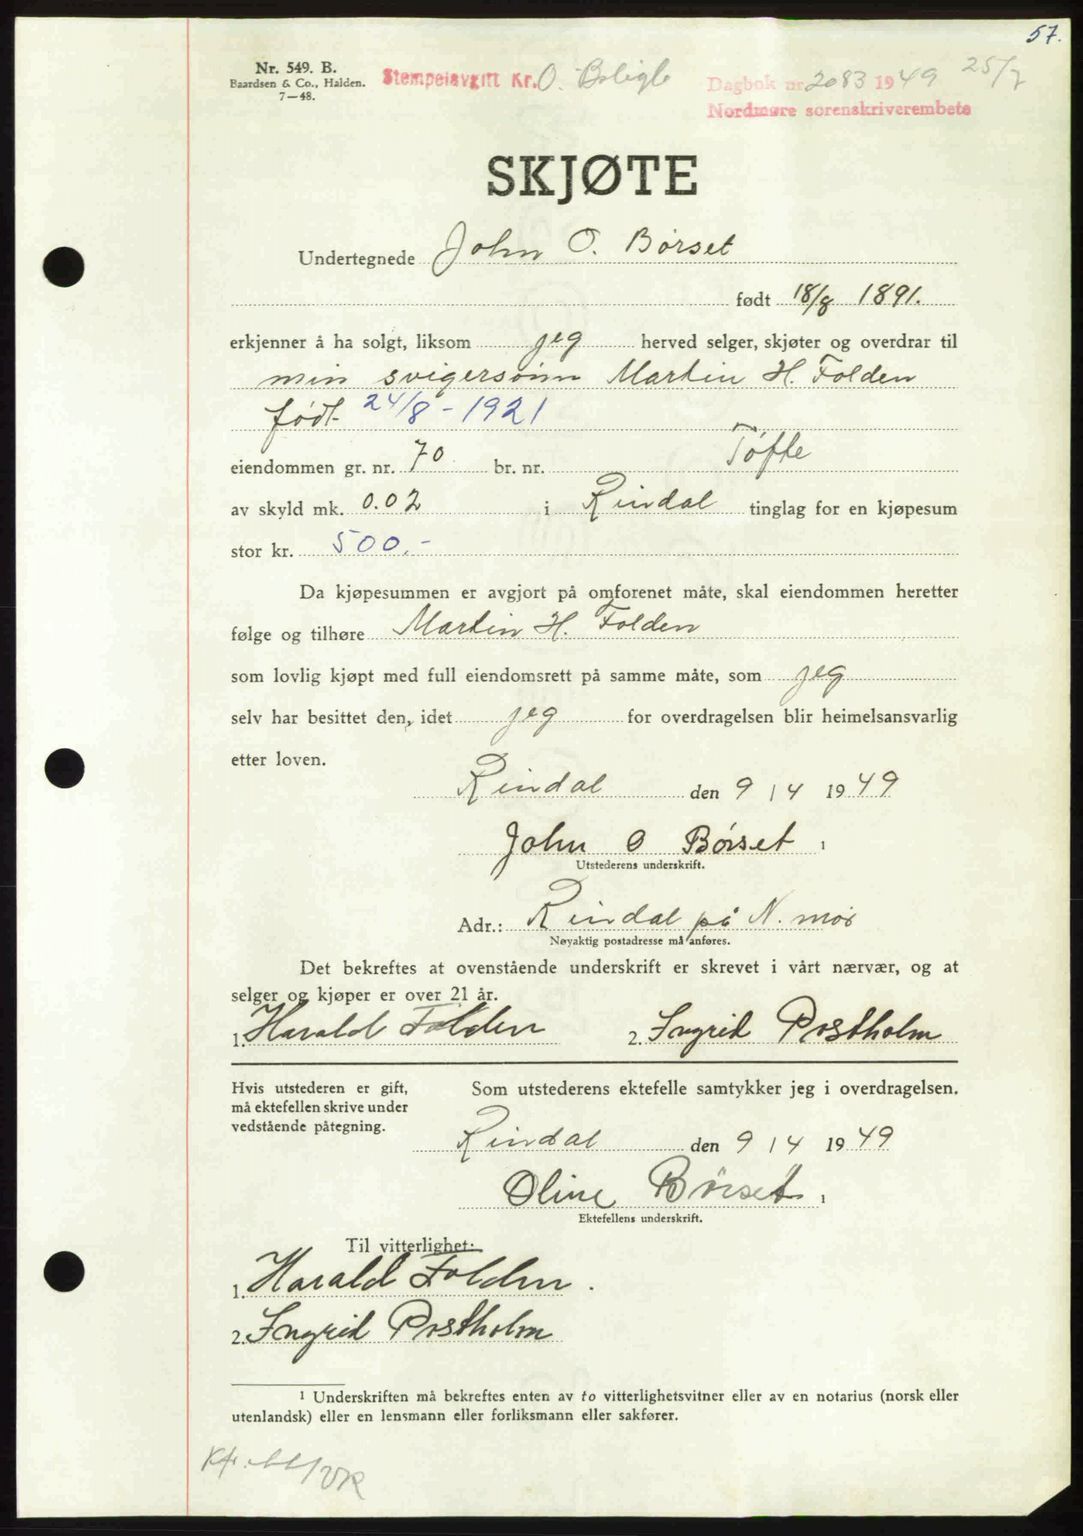 57.
Nr. 549. B.
Baardsen & Co., Halden.
7—48.
Stempelavgift Kr. 0. Boligl
Dagbok nr 2083 1949 25/7
Nordmøre sorenskriverembete
SKJØTE
Undertegnede John O. Børset
født 18/8 1891.
erkjenner å ha solgt, liksom jeg herved selger, skjøter og overdrar til
min svigersønn Martin H. Folden
født 24/8 - 1921
eiendommen gr. nr. 70 br. nr. Tøfte
av skyld mk. 0.02 i Rindal tinglag for en kjøpesum
stor kr. 500.-
Da kjøpesummen er avgjort på omforenet måte, skal eiendommen heretter
følge og tilhøre Martin H. Folden
som lovlig kjøpt med full eiendomsrett på samme måte, som jeg
selv har besittet den, idet jeg for overdragelsen blir heimelsansvarlig
etter loven.
Rindal den 9 / 4 1949
John O Børset 1
Utstederens underskrift.
Adr.: Rindal på N. mør
Nøyaktig postadresse må anføres.
Det bekreftes at ovenstående underskrift er skrevet i vårt nærvær, og at
selger og kjøper er over 21 år.
1. Harald Folden 2. Ingrid Postholm
Hvis utstederen er gift, Som utstederens ektefelle samtykker jeg i overdragelsen.
må ektefellen skrive under
vedstående påtegning.
Rindal den 9 / 4 1949
Oline Børset 1
Ektefellens underskrift.
Til vitterlighet:
1. Harald Folden.
2. Ingrid Postholm
1 Underskriften må bekreftes enten av to vitterlighetsvitner eller av en notarius (norsk eller
utenlandsk) eller en lensmann eller forliksmann eller sakfører.